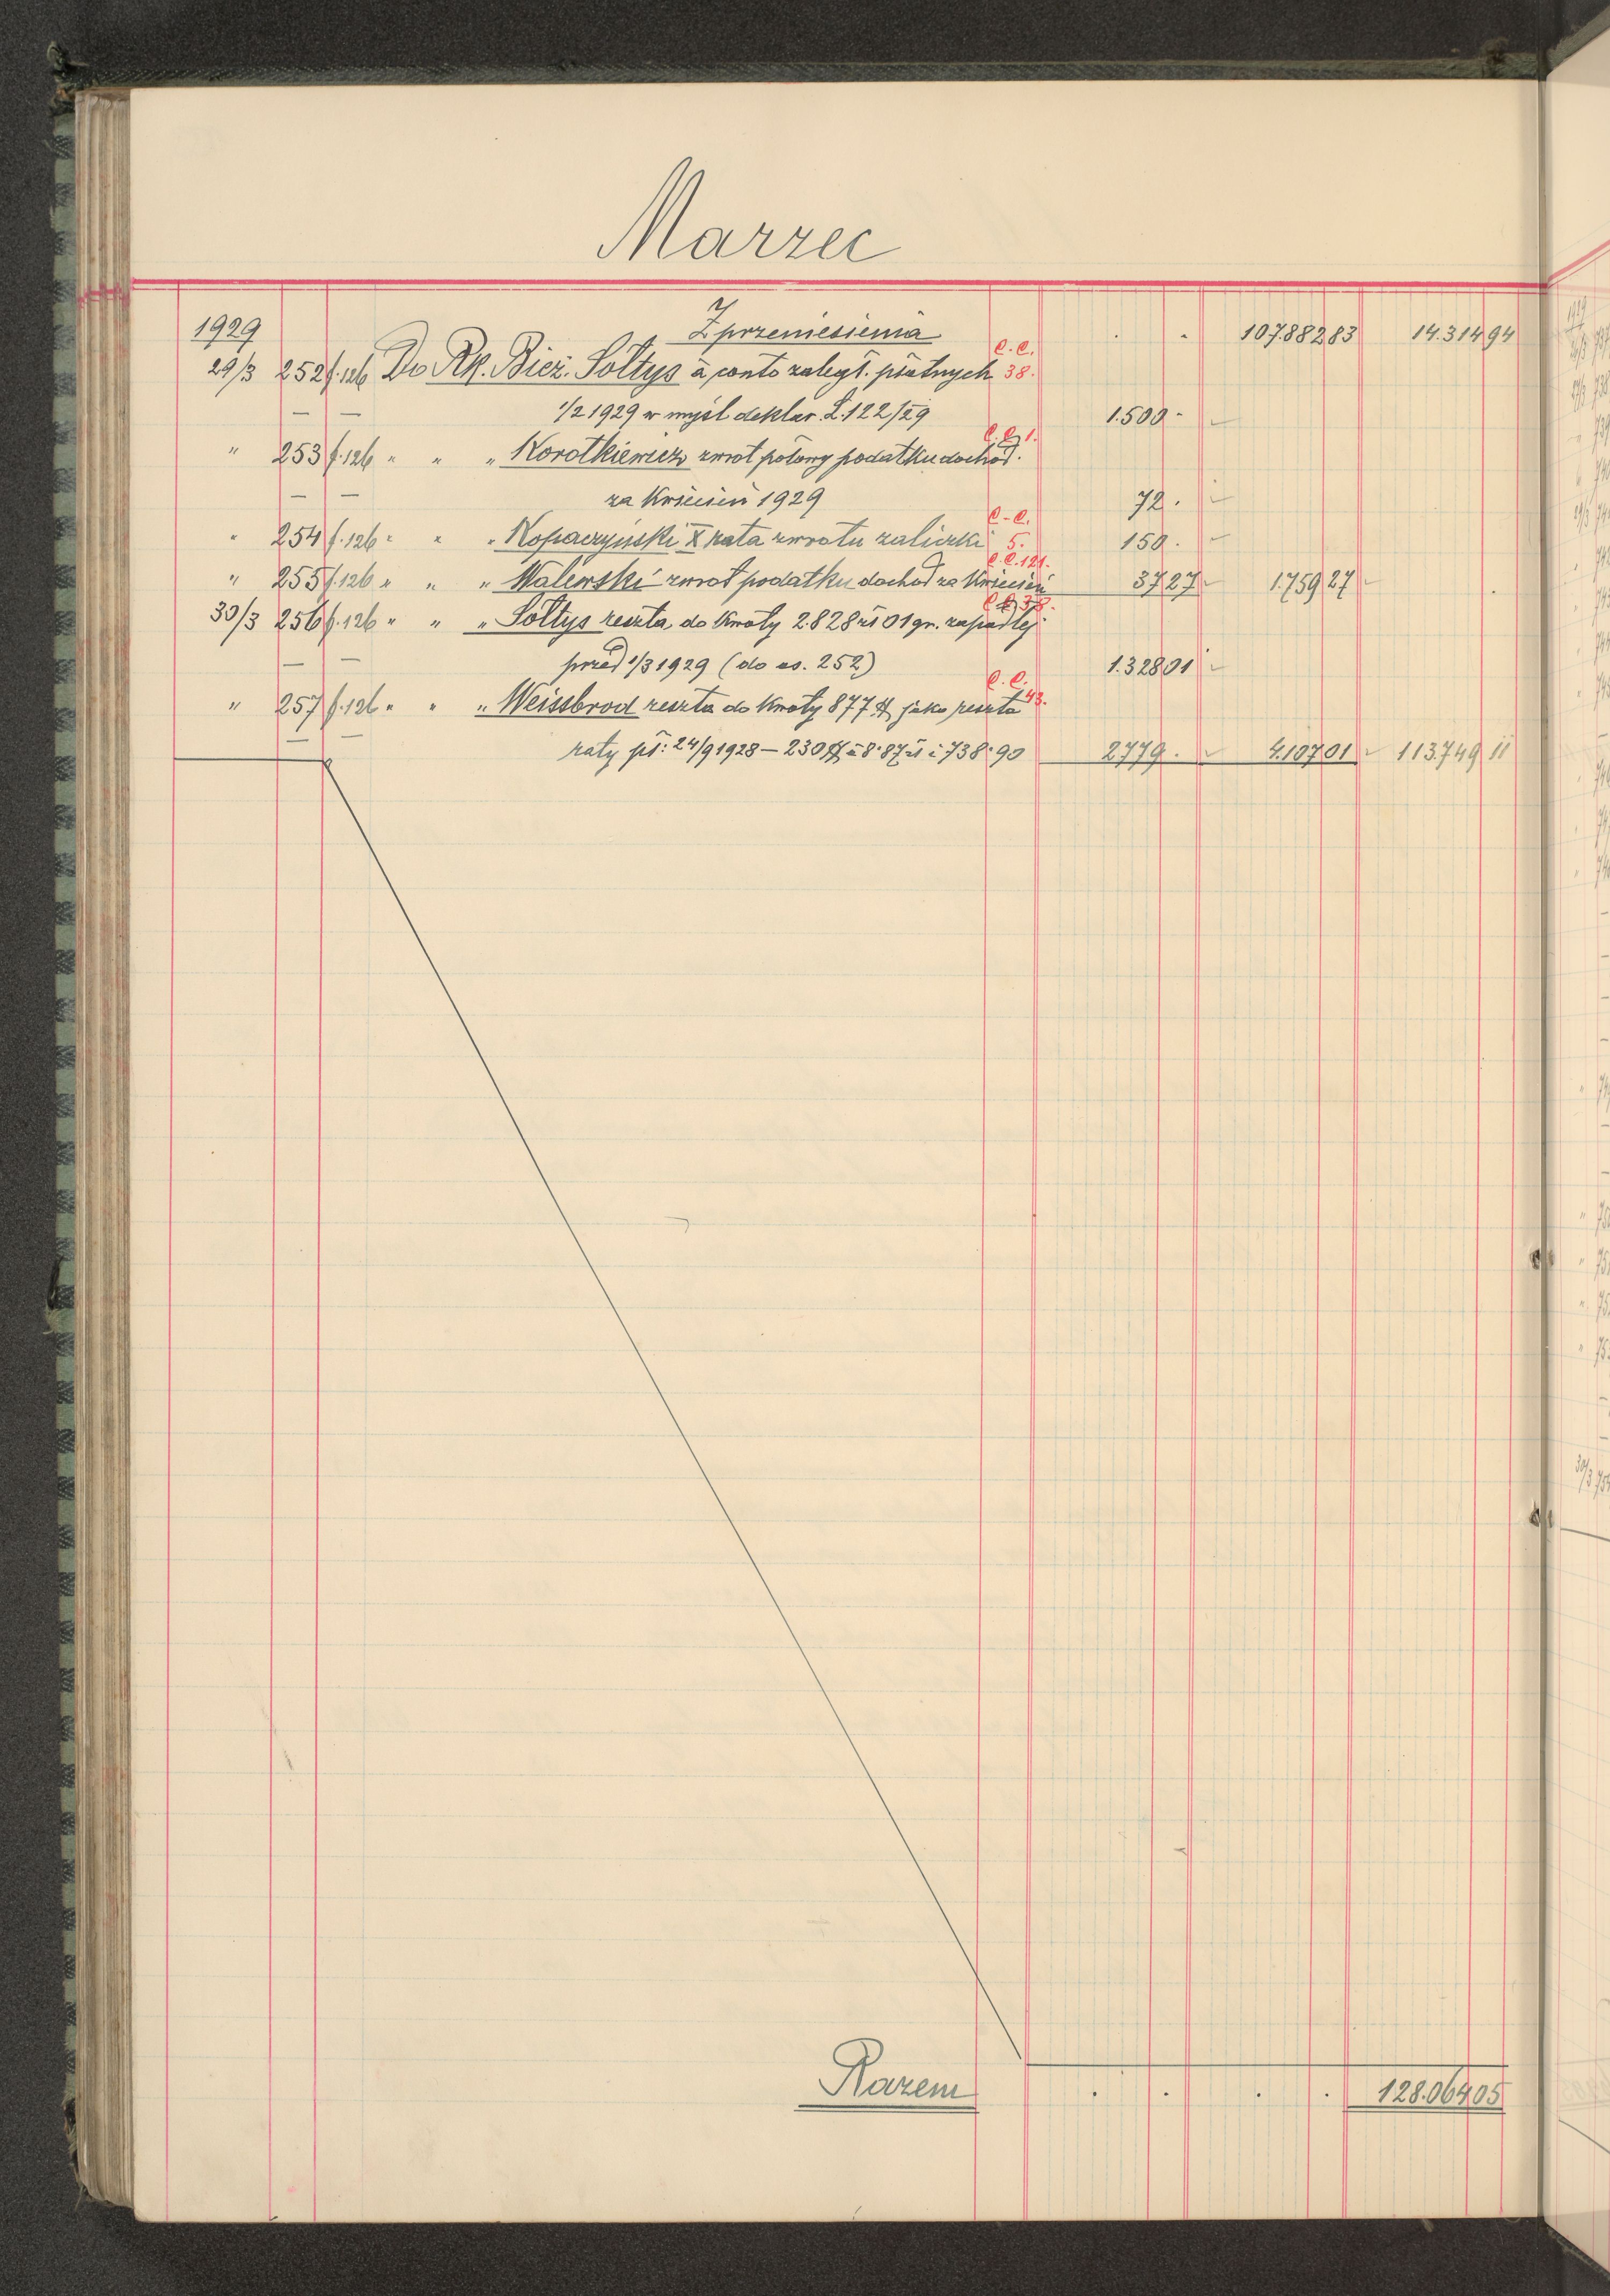 Marzec
1929 Z przeniesienia . . 107.882 83 14.314 94
29/3 252 f.126 Do Rk. Bież. Sołtys à conto zaległ. płatnych C.C. 38.
— — 1/2 1929 w myśl deklar. L.122/29 1.500 -
" 253 f.126 " " " Korotkiewicz zwrot połowy podatku dochod. C.C. 1.
— — za Kwiecień 1929 72 .
" 254 f.126 " " " Kopaczyński X rata zwrotu zaliczki C-C. 5. 150 .
" 255 f.126 " " " Walewski zwrot podatku dochod za Kwiecień C.C. 121. 37 27 1.759 27
30/3 256 f.126 " " " Sołtys reszta do kwoty 2.828 zł 01 gr. zapadłej C.C. 38.
— — przed 1/3 1929 (do as. 252) 1.328 01
" 257 f.126 " " " Weissbrod reszta do kwoty 877 $ jako reszta C.C. 43.
— — raty pł: 24/9 1928 — 230 $ à 8·87 zł i 738·90 2779 . 4.107 01 113.749 11
Razem . . . . 128.064 05